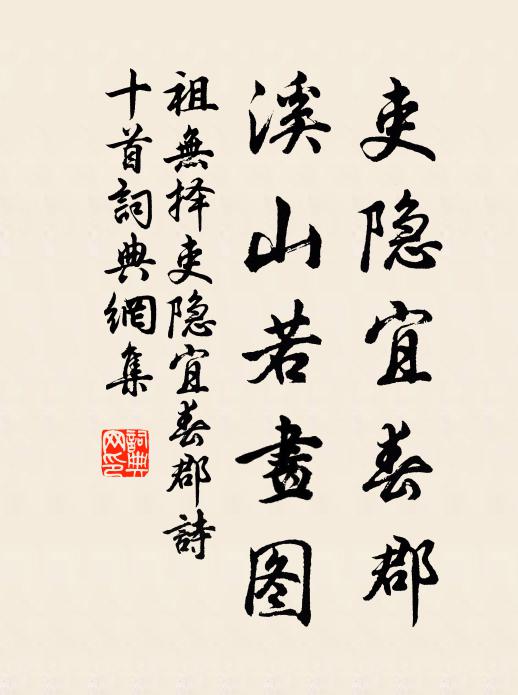 吏隐宜春郡
溪山若畫图
祖無择吏隐宜春郡詩
十首詞典網集
詞典网印